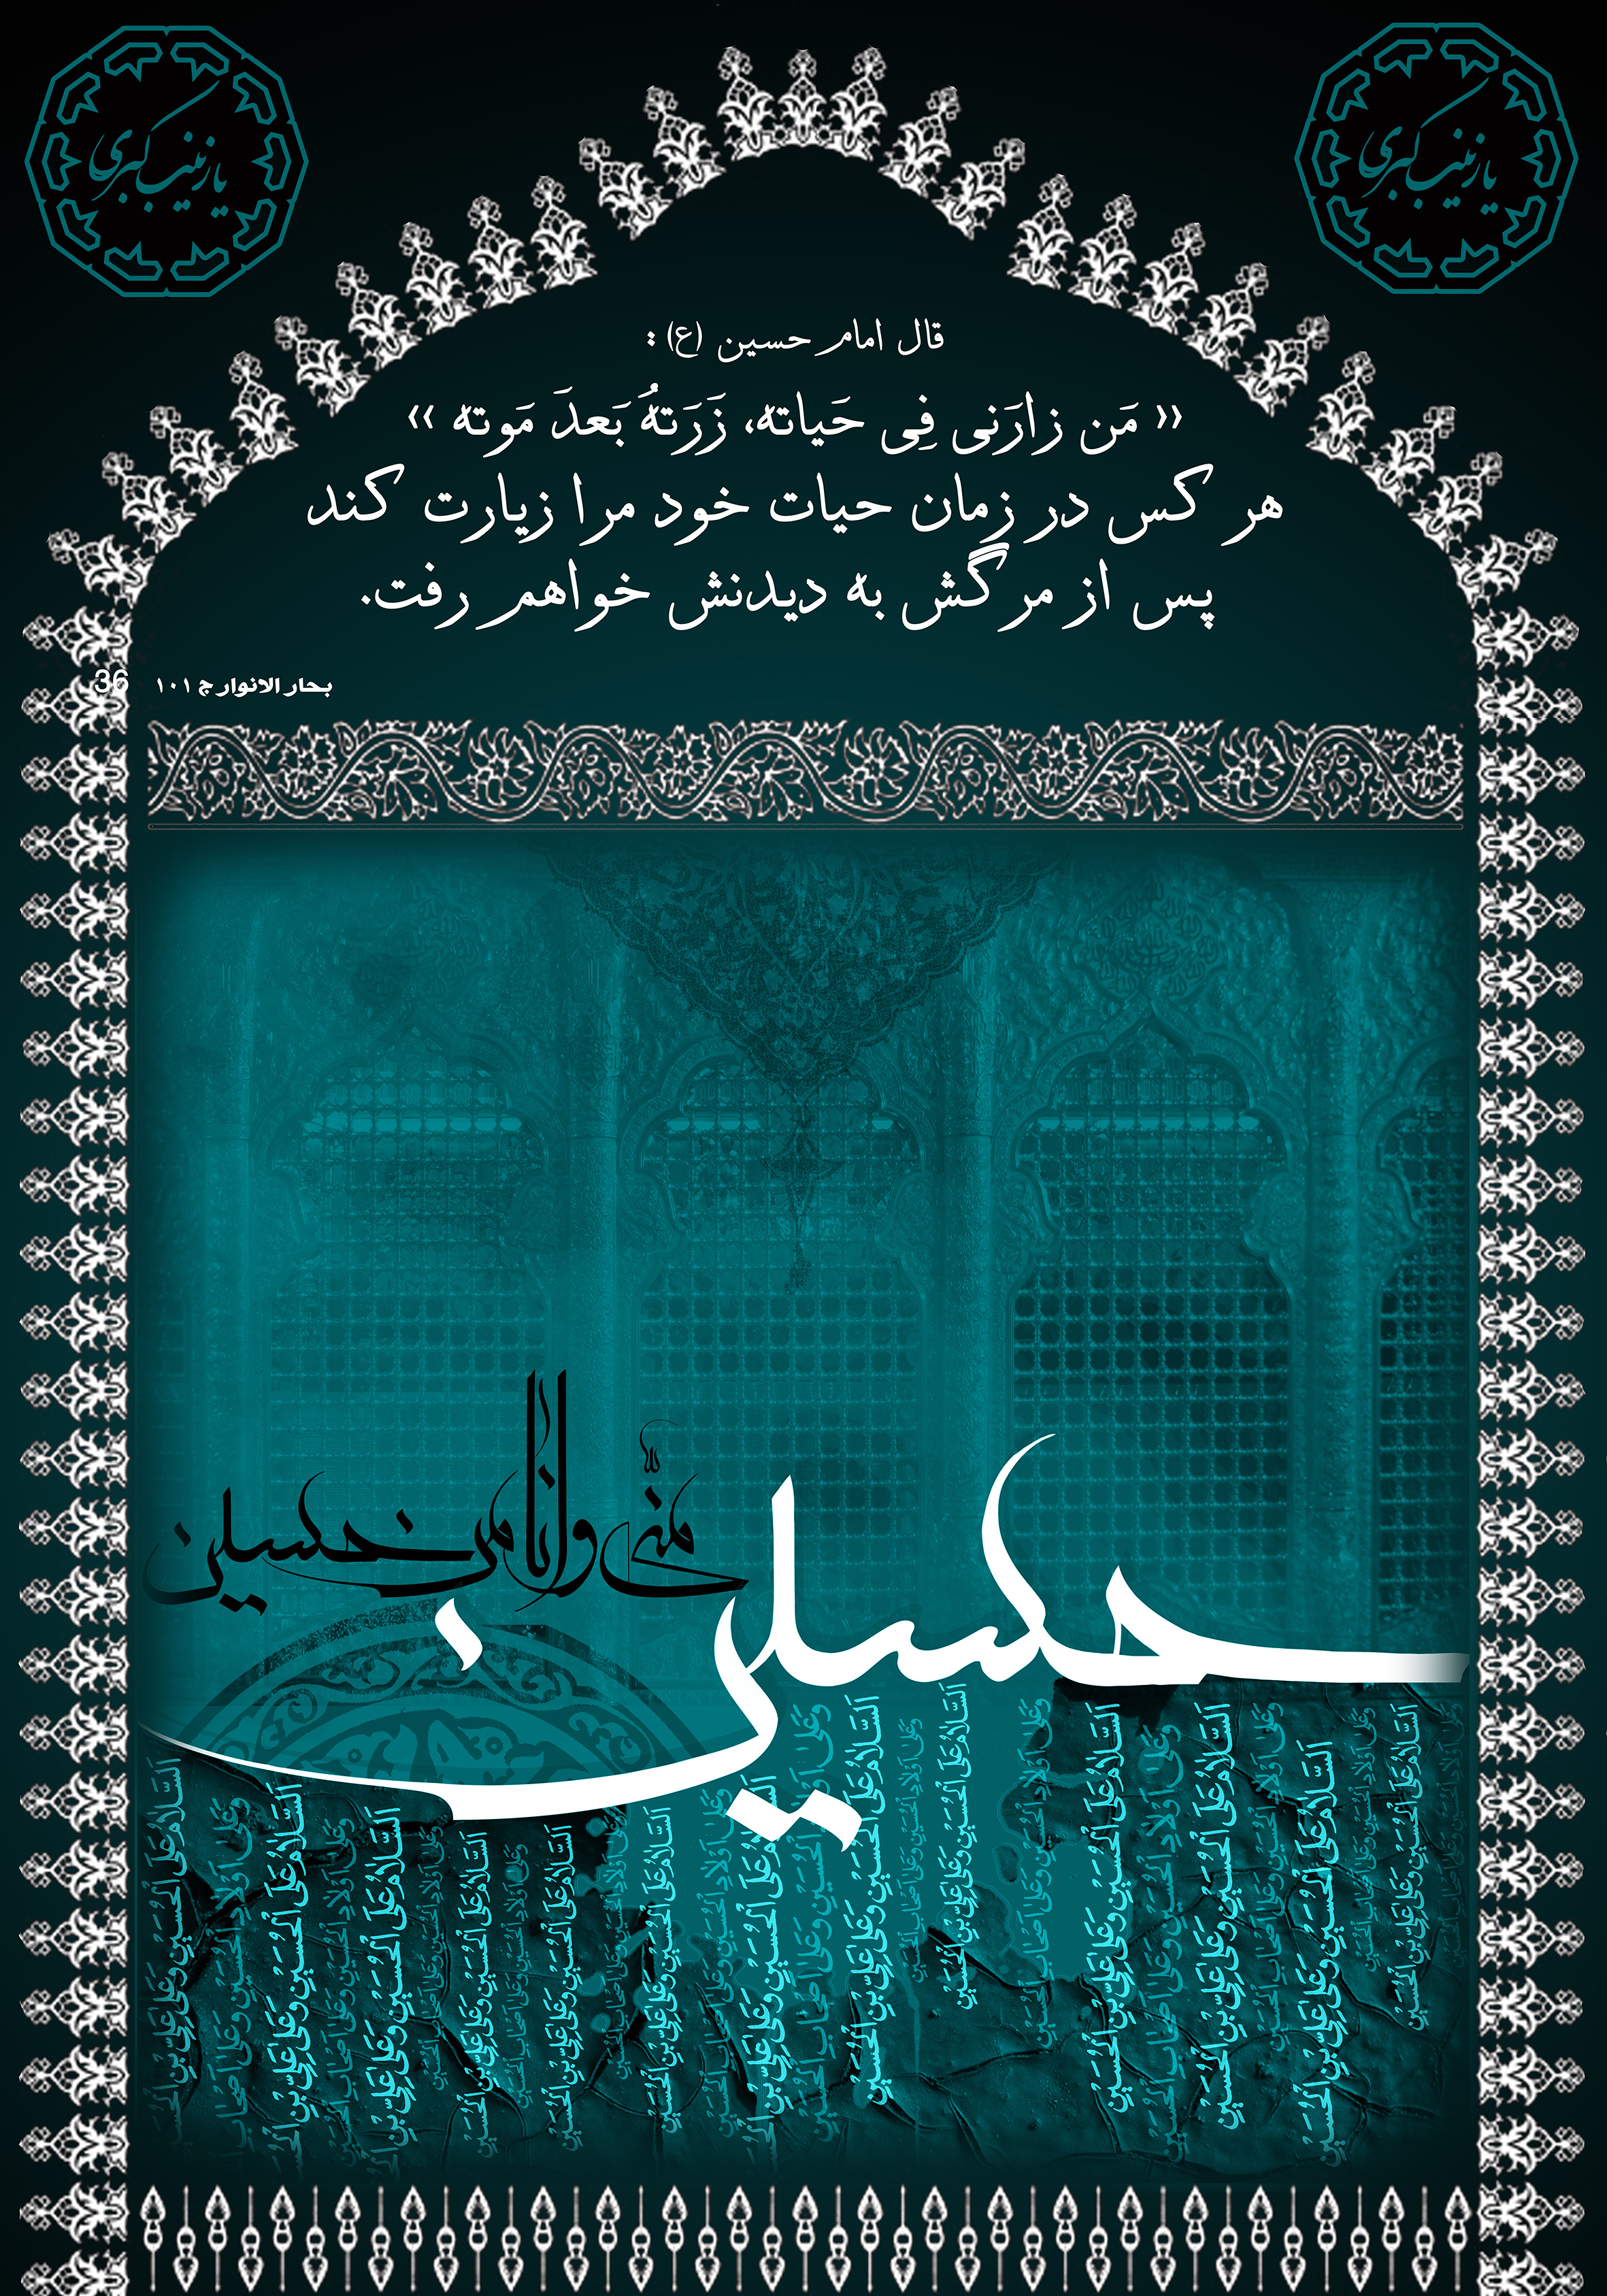 یا زینب کبری
یا زینب کبری
قال امام حسین (ع) :
« مَن زارَنی فِی حَیاته، زَرَتهُ بَعدَ مَوته »
هر کس در زمان حیات خود مرا زیارت کند
پس از مرگش به دیدنش خواهم رفت.
بحار الانوار ج ۱۰۱ 36
حسین
منّی و انا من حسین
اَلسَّلامُ عَلَی الْحُسَیْنِ وَ عَلی عَلِیِّ بْنِ الْحُسَیْنِ
وَ عَلی اَوْلادِ الْحُسَیْنِ وَ عَلی اَصْحابِ الْحُسَیْنِ